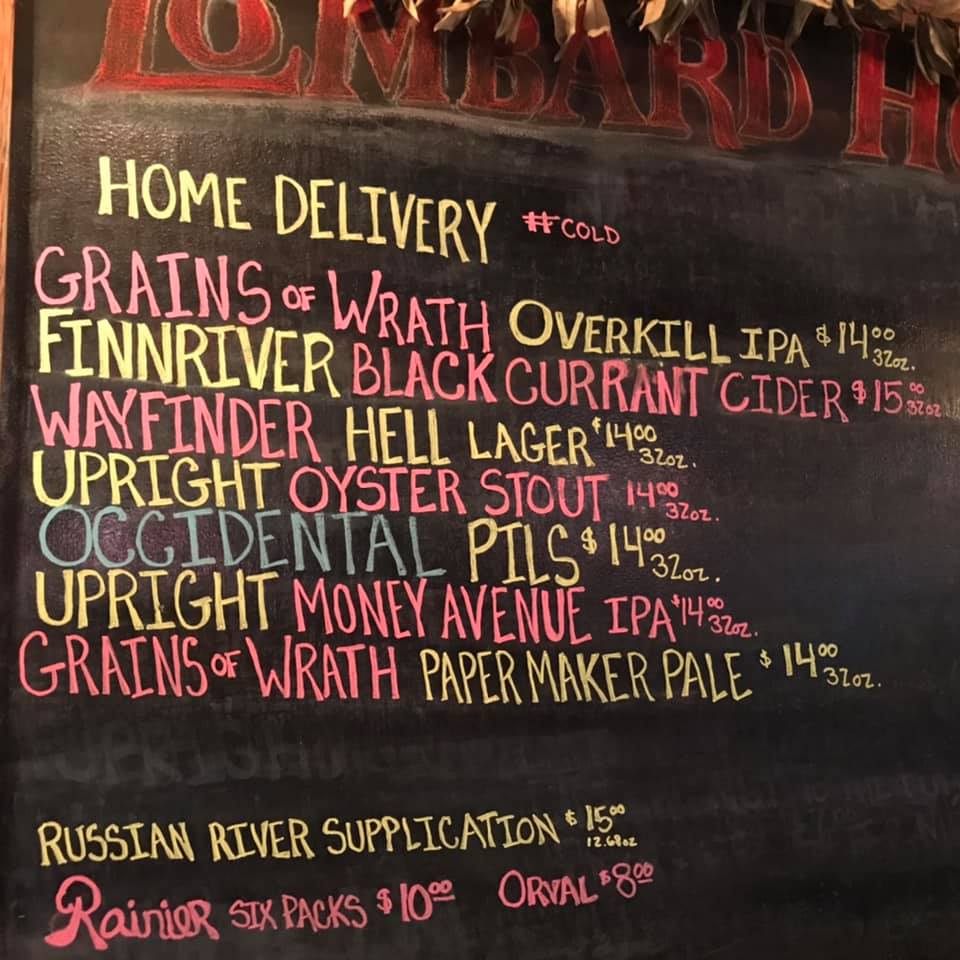 LOMBARD HO
HOME DELIVERY #COLD
GRAINS OF WRATH OVERKILL IPA $14.00 32oz.
FINNRIVER BLACK CURRANT CIDER $15.00 32oz
WAYFINDER HELL LAGER $14.00 32oz.
UPRIGHT OYSTER STOUT 14.00 32oz.
OCCIDENTAL PILS $14.00 32oz.
UPRIGHT MONEY AVENUE IPA $14.00 32oz.
GRAINS OF WRATH PAPER MAKER PALE $14.00 32oz.
UPRIGH
RUSSIAN RIVER SUPPLICATION $15.00 12.68oz
Rainier SIX PACKS $10.00 ORVAL $8.00